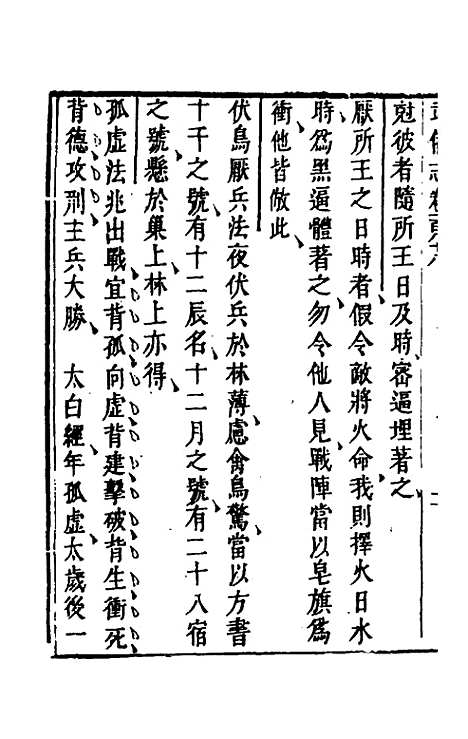 尅彼者隨所王日及時審逼埋著之
厭所王之日時者假令敵將火命我則擇火日水
時爲黑逼體著之勿令他人見戰陣當以皂旗爲
衝他皆倣此
伏鳥厭兵法夜伏兵於林薄慮禽鳥驚當以方書
十干之號有十二辰名十二月之號有二十八宿
之號懸於巢上林上亦得
孤虛法兆出戰宜背孤向虛背建擊破背生衝死
背德攻刑主兵大勝　太白經年孤虛太歲後一